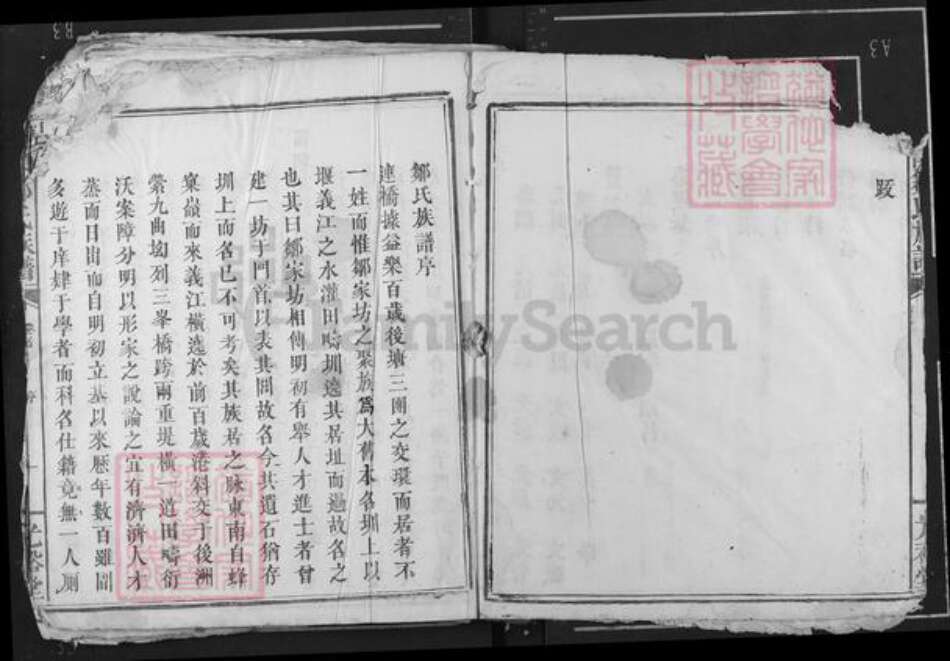 跋
鄒氏族譜序
連橋據益樂百歲後壩三團之交環而居者不
一姓而惟鄒家坊之聚族爲大舊本名圳上以
堰義江之水灌田疇圳遶其居址而過故名之
也其曰鄒家坊相傳明初有舉人才進士者曾
建一坊于門首以表其閭故名今其遺石猶存
圳上而名已不可考矣其族居之脉東南自蜂
窠嶺而來義江橫遶於前百歲港斜交于後洲
縈九曲坳列三峯橋跨兩重堤橫一道田疇衍
沃案障分明以形家之說論之宜有濟濟人才
蒸而日出而自明初立基以來歷年數百雖間
多遊于庠肄于學者而科名仕籍竟無一人厠
FamilySearch
A3
B3